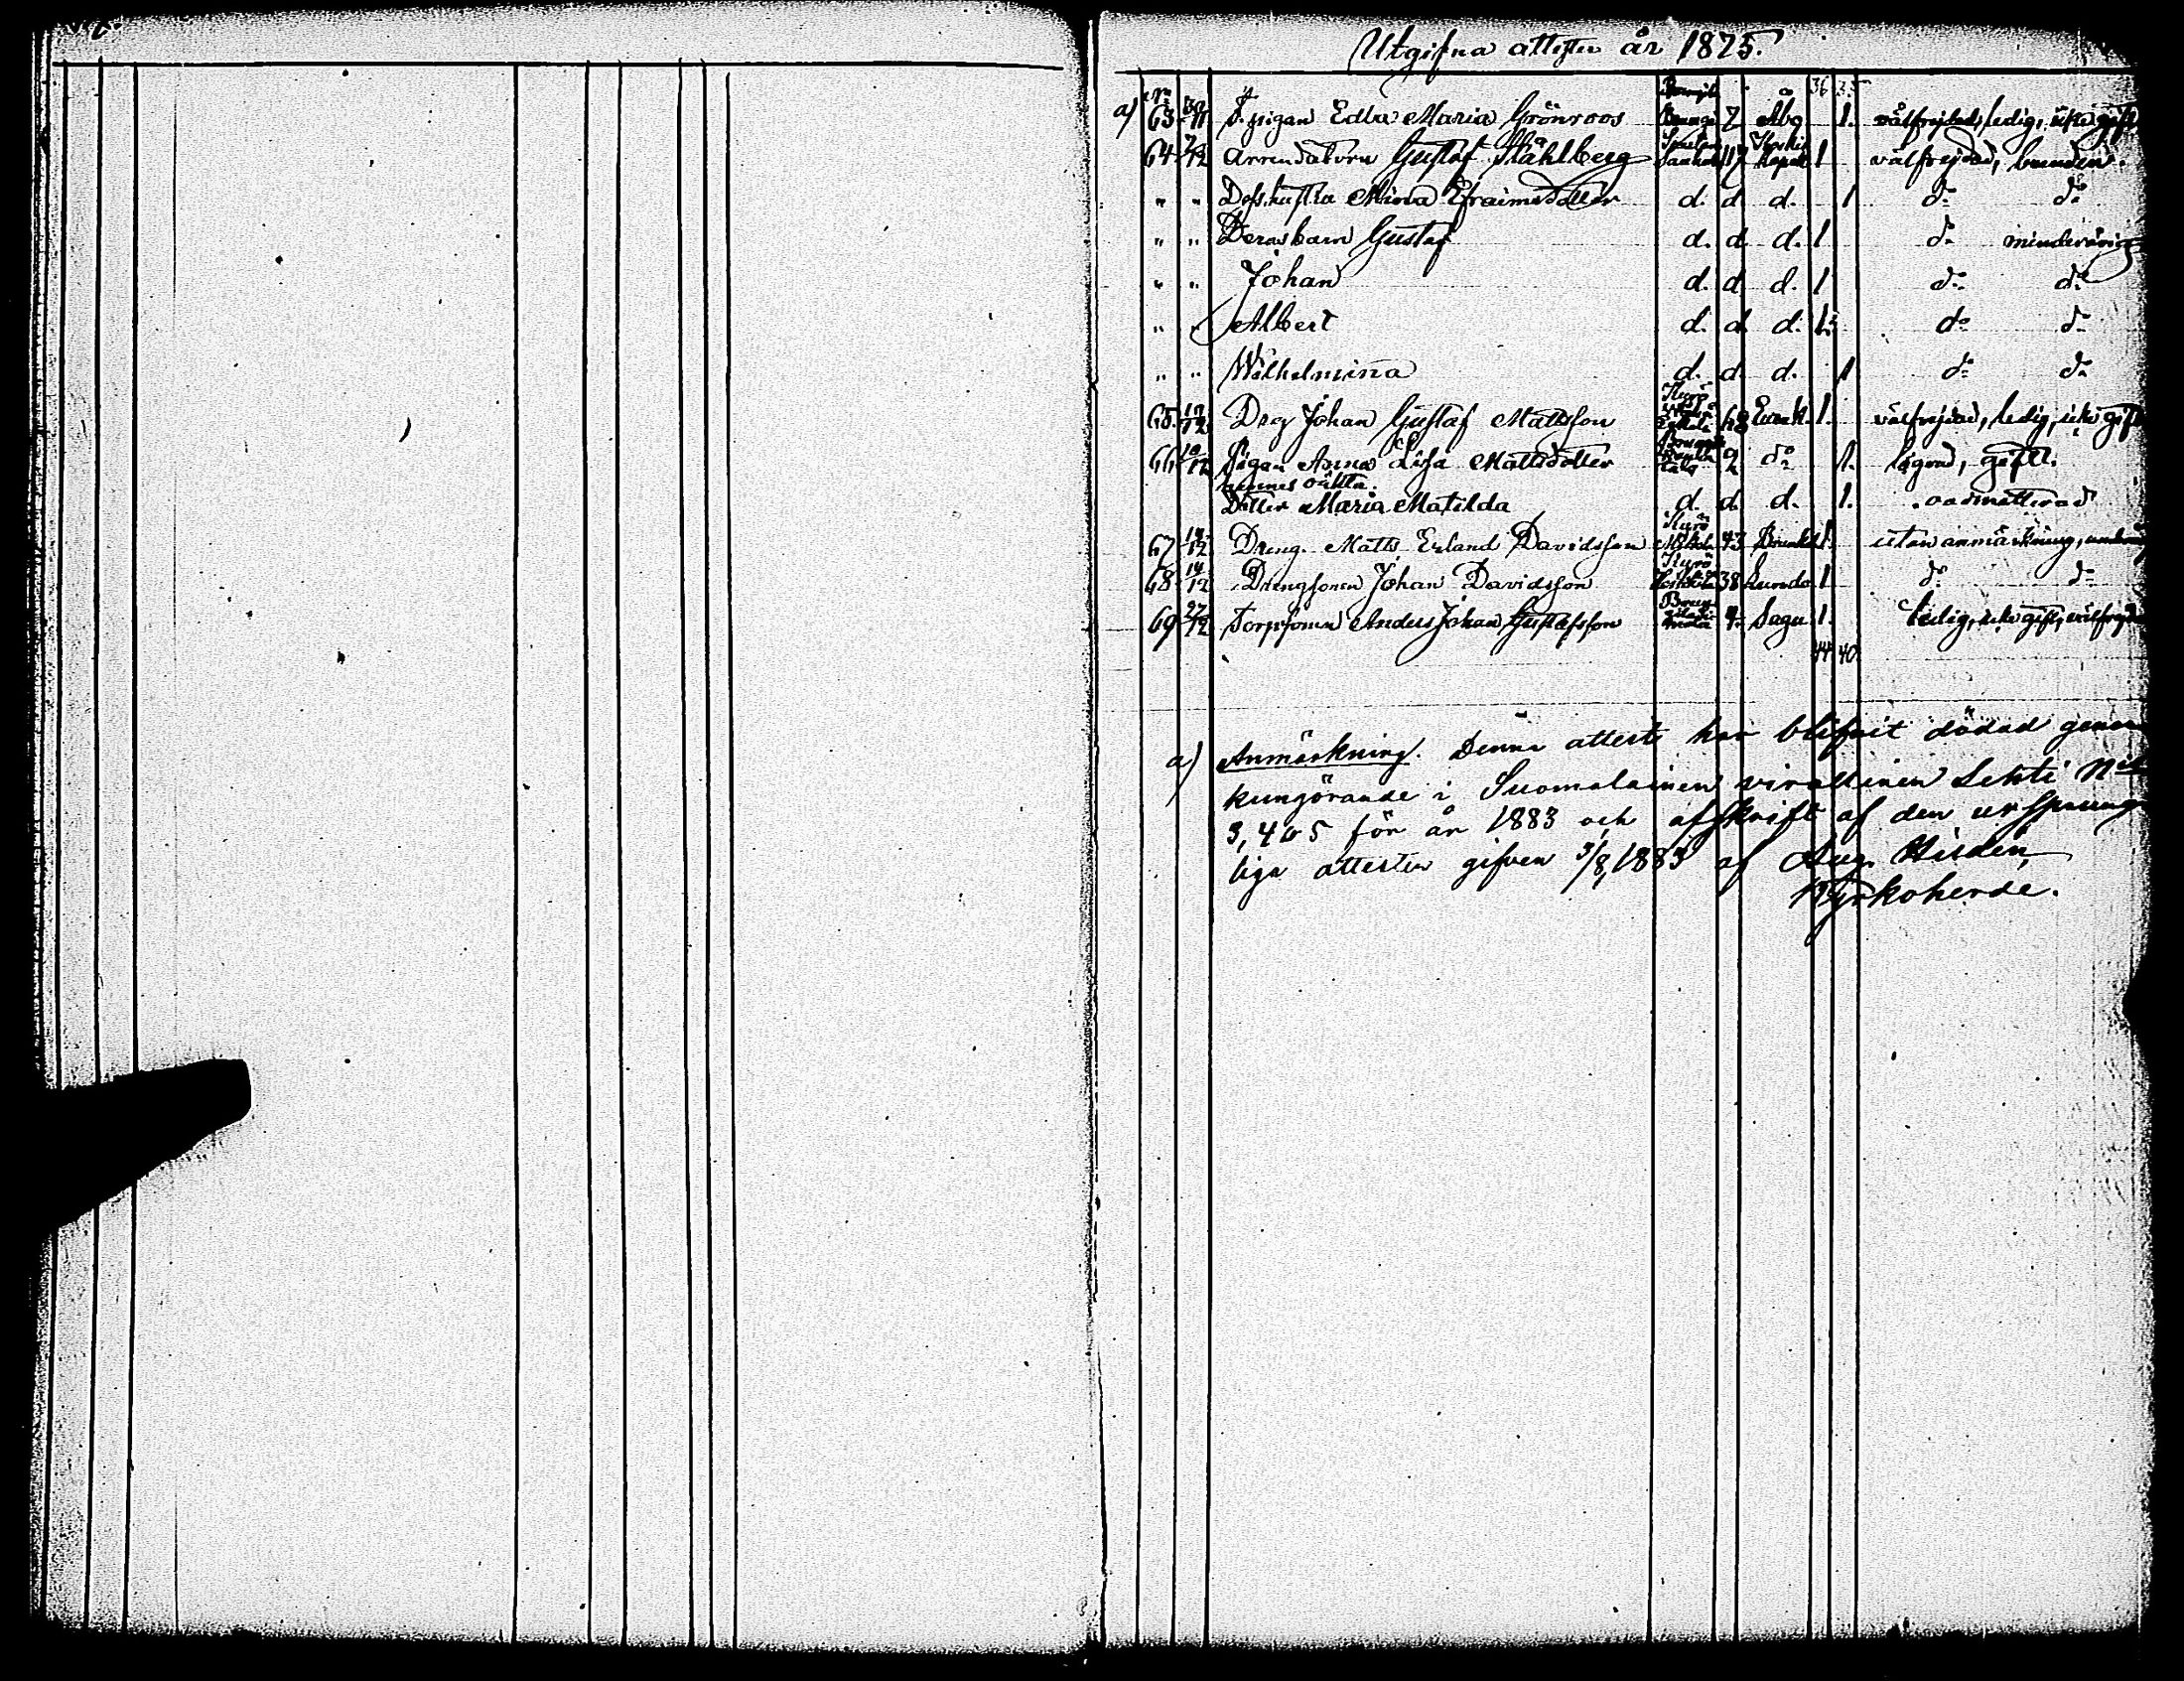 Utgifna attester år 1875.
36 35
a) No 63 30/11 T. pigan Edla Maria Grönroos 7 Åbo 1. välfrejdad, ledig, icke gift
64 /12 Arrendatorn Gustaf Ståhlberg 117 Kapell 1 välfrejdad, bunden.
" " Dess hustru Mina Efraimsdotter d. d d. 1 do do
" " Deras barn Gustaf d. d d. 1 do minderårig
" " Johan d. d d. 1 do do
" " Albert d. d d. 1 do do
" " Wilhelmina d. d. d. 1 do do
65. 10/12 Drg Johan Gustaf Mattsson 48 1. välfrejdad, ledig, icke gift
66 10/12 Pigan Anna Lisa Mattsdotter 9 do 1. lägrad, gift.
hennes oäkta
Dotter Maria Matilda d. d. d. 1. oadmitterad
67 14/12 Dreng Matts Erland Davidsson Kuro 43 1. utan anmärkning,
68 14/12 Drengsonen Johan Davidsson Kuro 38 Lundo 1 do do
69 27/12 Torpsonen Anders Johan Gustafsson Sagu 1. ledig, icke gift, välfrejd
44 40
a) Anmärkning. Denna attest har blifvit dödad genom
kungörande i Suomalainen virallinen Lehti No
3,4 o 5 för år 1883 och afskrift af den ursprung
liga attesten gifven 3/8, 1883 af Aug. Hirdén,
Kyrkoherde.